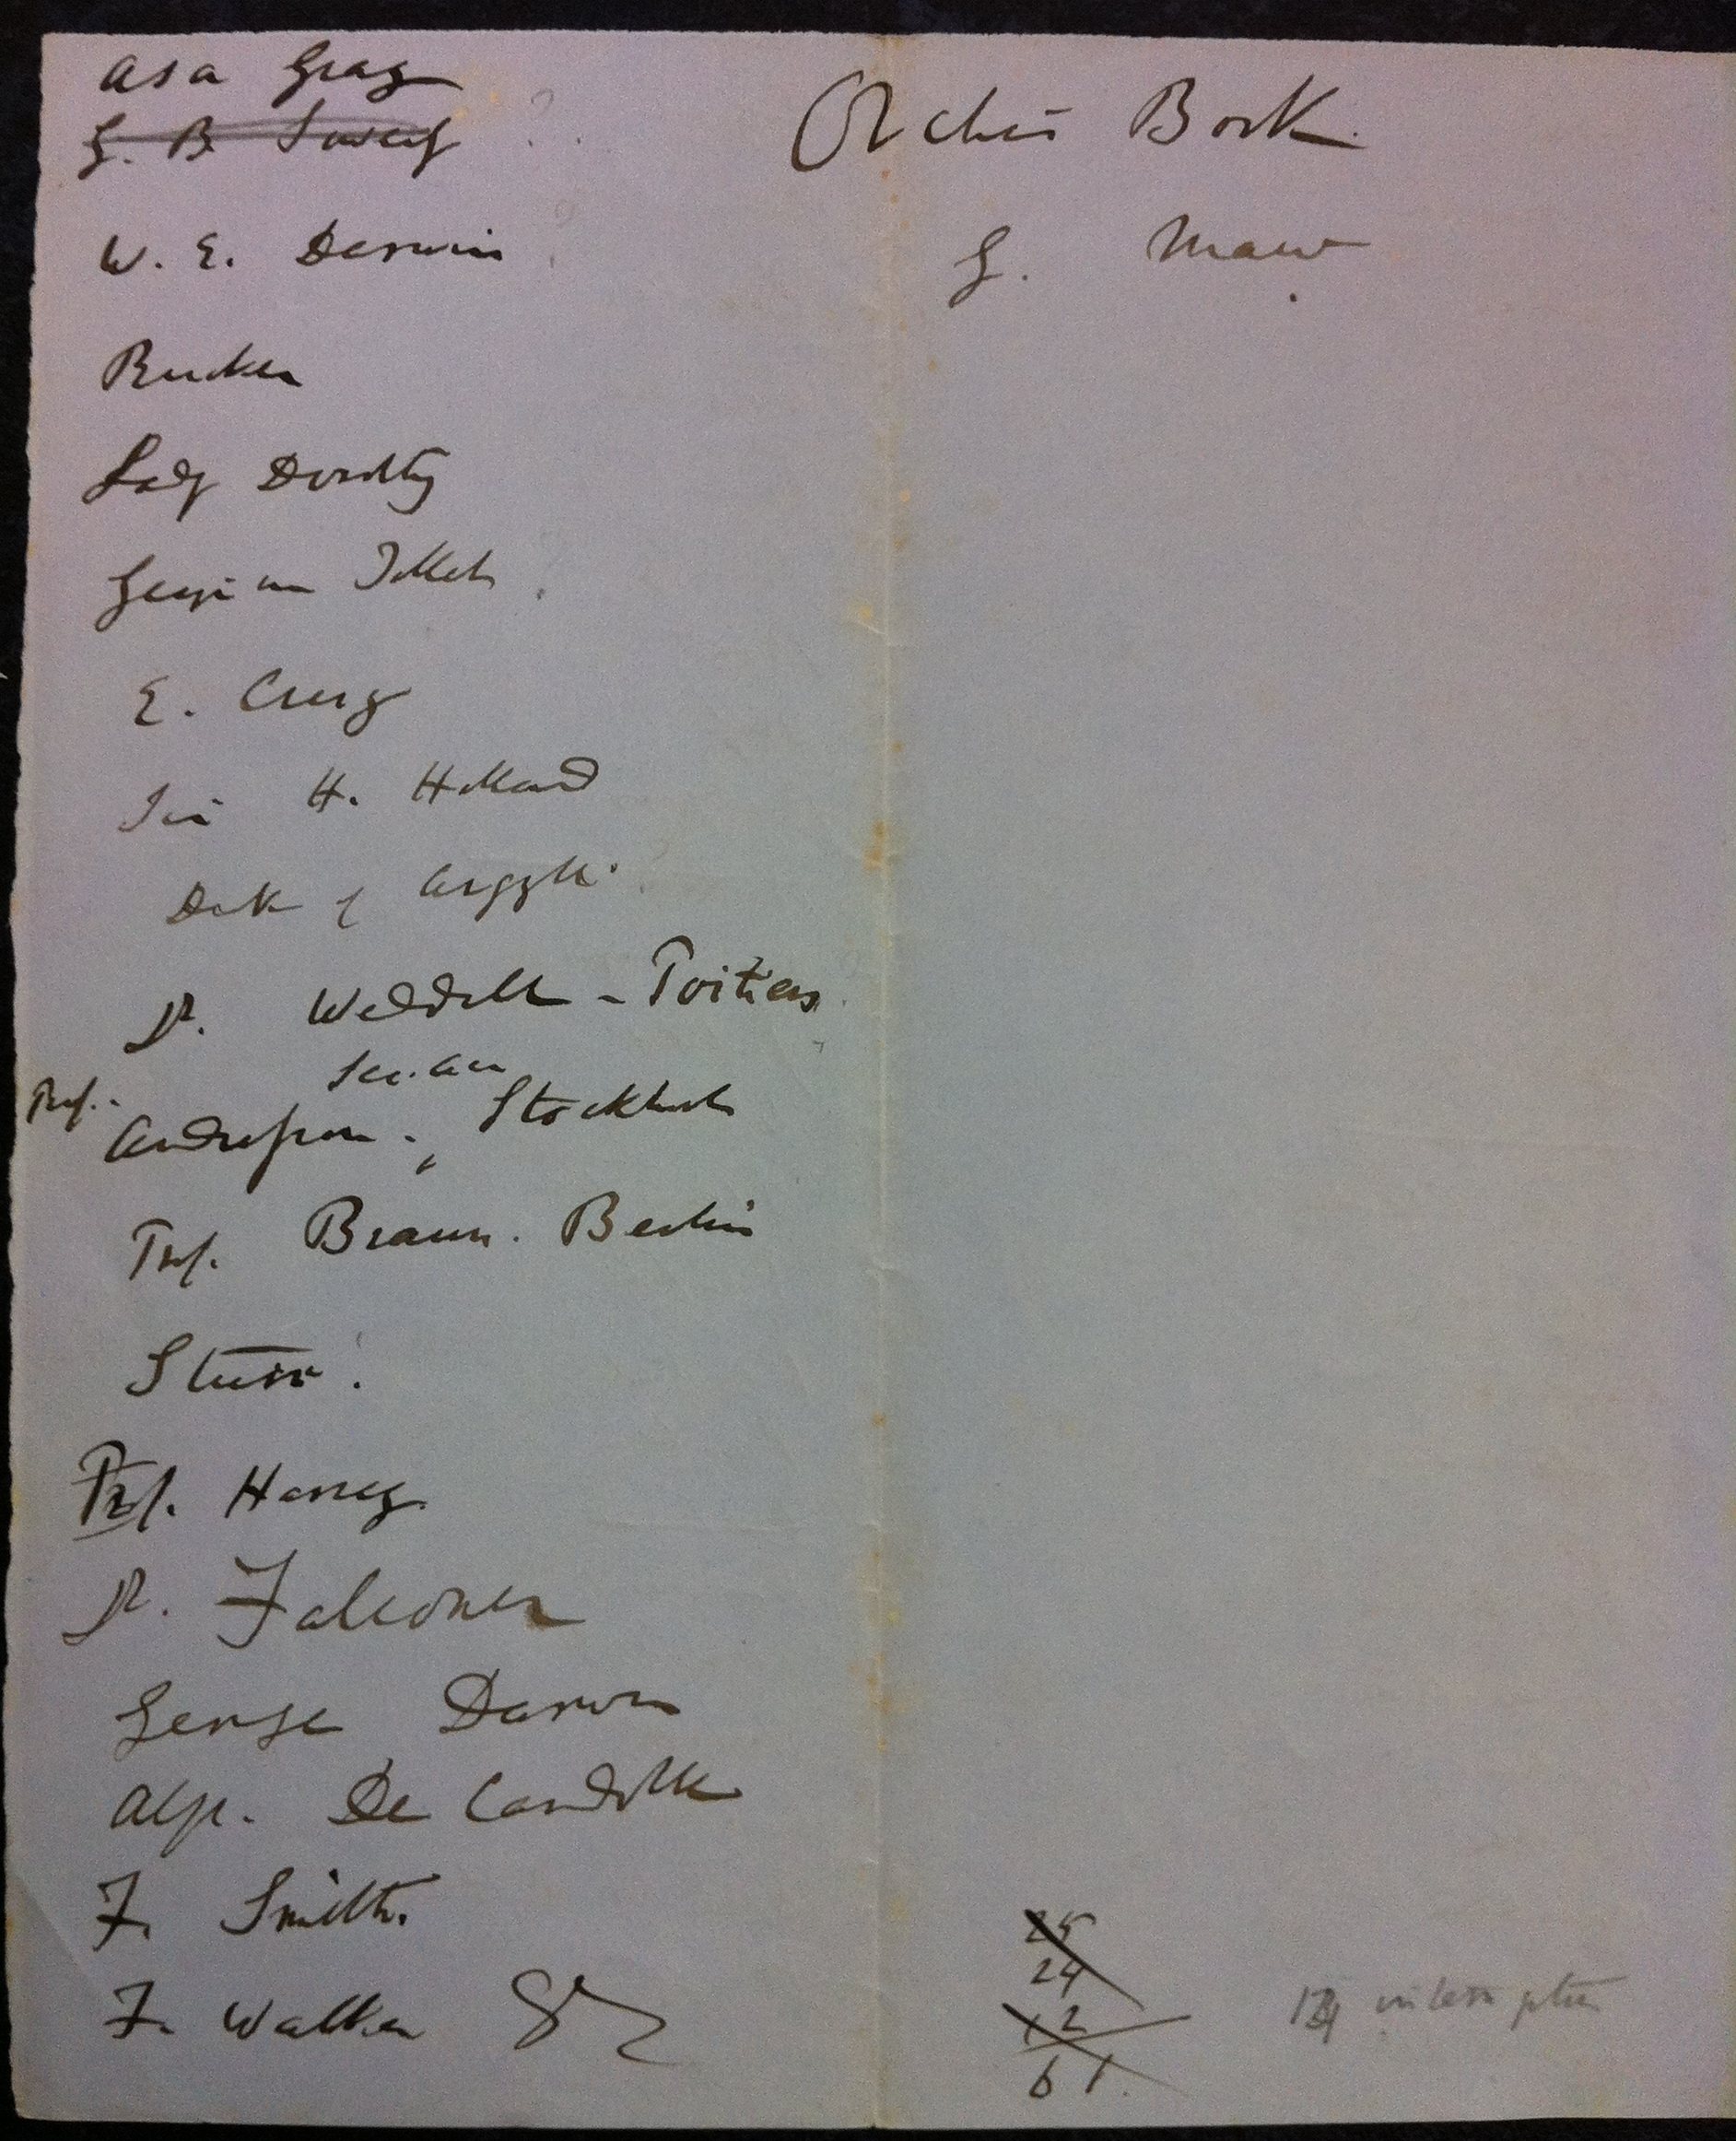 Asa Gray
G. B. Sowerby
W. E. Darwin
Rucker
Lady Dorothy
Georgina Tollet
E. Cresy
Sir H. Holland
Duke of Argyll
Dr. Weddell – Poitiers
Prof. Andersson. Stockholm
Prof. Braun. Berlin
Prof. Harvey
Dr. Falconer
George Darwin
Alph. De Candolle
F. Smith
F. Walker
Orchis Book
G. Maw
25
24
12
61